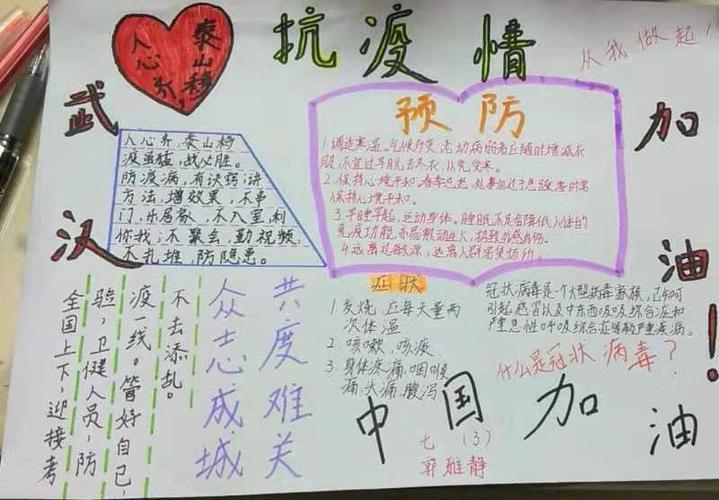 人心齐,
泰山移
抗疫情
从我做起!
武汉
加油!
人心齐,泰山移
疫虽猛,战必胜。
防疫病,有诀窍;讲
方法,增效果,不串
门,乐居家,不入室,利
你我;不聚会,勤视频,
不扎堆,防隐患。
预防
1.调适寒温。气候多变,老幼病弱者应随时增减衣
服,不宜过早脱去冬衣,以免受寒。
保持心境平和。
3.早睡早起,运动身体。睡眠不足会降低人体的
4.远离过敏源,远离人群密集场所。
症状
1发烧,应每天量两
次体温
2.咳嗽,咳痰
3.身体疼痛,咽喉
痛,头痛,腹泻
冠状病毒是一个大型病毒家族,已知可
引起感冒以及中东呼吸综合征和
严重急性呼吸综合征等较严重疾病。
什么是冠状病毒?
全国上下,迎接考
验,卫健人员,防
疫一线。管好自己,
不去添乱。
众志成城
共度难关
中国加油
七(3)
郭雅静